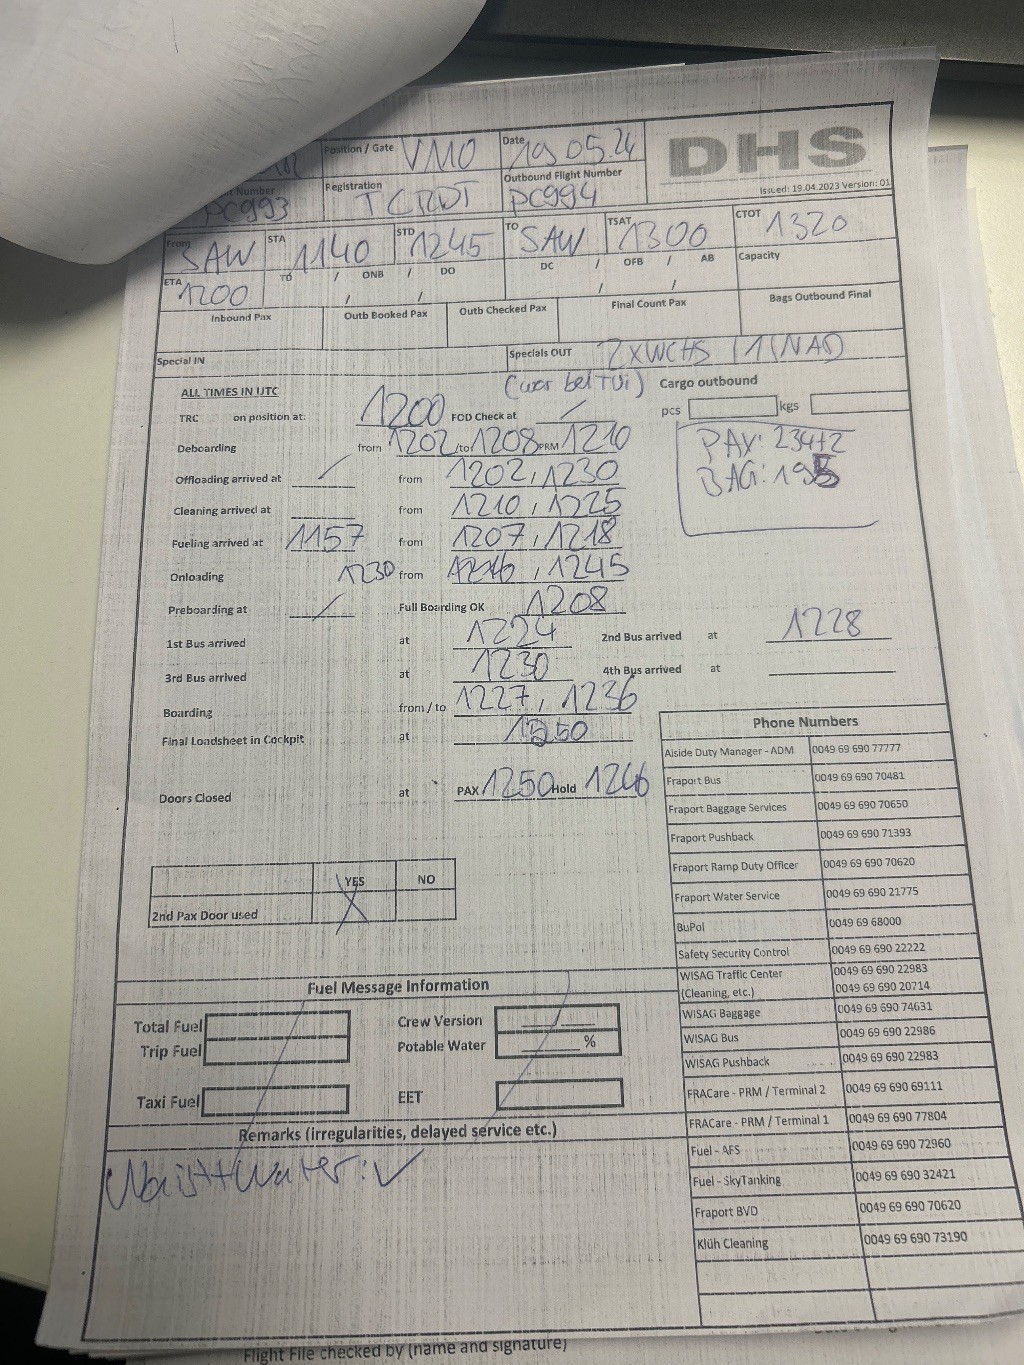 Position / Gate VM0 Date 19 05.24 DHS
Number PC993 Registration TCRDT Outbound Flight Number PC994
Issued: 19.04.2023 Version: 01
From SAW STA 1140 STD 1245 TO SAW TSAT 1300 CTOT 1320
ETA 1200 TD / ONB / DO DC / OFB / AB Capacity
Inbound Pax Outb Booked Pax Outb Checked Pax Final Count Pax Bags Outbound Final
Special IN Specials OUT 2XWCHS 1 INAD
ALL TIMES IN UTC (war bei TUi) Cargo outbound
TRC on position at: 1200 FOD Check at pcs kgs
Deboarding from 1202 /to 1208 PRM 1210 PAX: 234+2
Offloading arrived at from 1202, 1230 BAG: 195
Cleaning arrived at from 1210, 1225
Fueling arrived at 1157 from 1207, 1218
Onloading 1230 from , 1245
Preboarding at Full Boarding OK 1208
1st Bus arrived at 1224 2nd Bus arrived at 1228
3rd Bus arrived at 1230 4th Bus arrived at
Boarding from / to 1227, 1236
Final Loadsheet in Cockpit at 1250
Doors Closed at PAX 1250 Hold 1246
YES NO
2nd Pax Door used X
Phone Numbers
Aiside Duty Manager - ADM 0049 69 690 77777
Fraport Bus 0049 69 690 70481
Fraport Baggage Services 0049 69 690 70650
Fraport Pushback 0049 69 690 71393
Fraport Ramp Duty Officer 0049 69 690 70620
Fraport Water Service 0049 69 690 21775
BuPol 0049 69 68000
Safety Security Control 0049 69 690 22222
WISAG Traffic Center 0049 69 690 22983
(Cleaning, etc.) 0049 69 690 20714
WISAG Baggage 0049 69 690 74631
WISAG Bus 0049 69 690 22986
WISAG Pushback 0049 69 690 22983
FRACare - PRM / Terminal 2 0049 69 690 69111
FRACare - PRM / Terminal 1 0049 69 690 77804
Fuel - AFS 0049 69 690 72960
Fuel - SkyTanking 0049 69 690 32421
Fraport BVD 0049 69 690 70620
Klüh Cleaning 0049 69 690 73190
Fuel Message Information
Total Fuel Crew Version /
Trip Fuel Potable Water %
Taxi Fuel EET
Remarks (irregularities, delayed service etc.)
Waist+Water: ✓
Flight File checked by (name and signature)